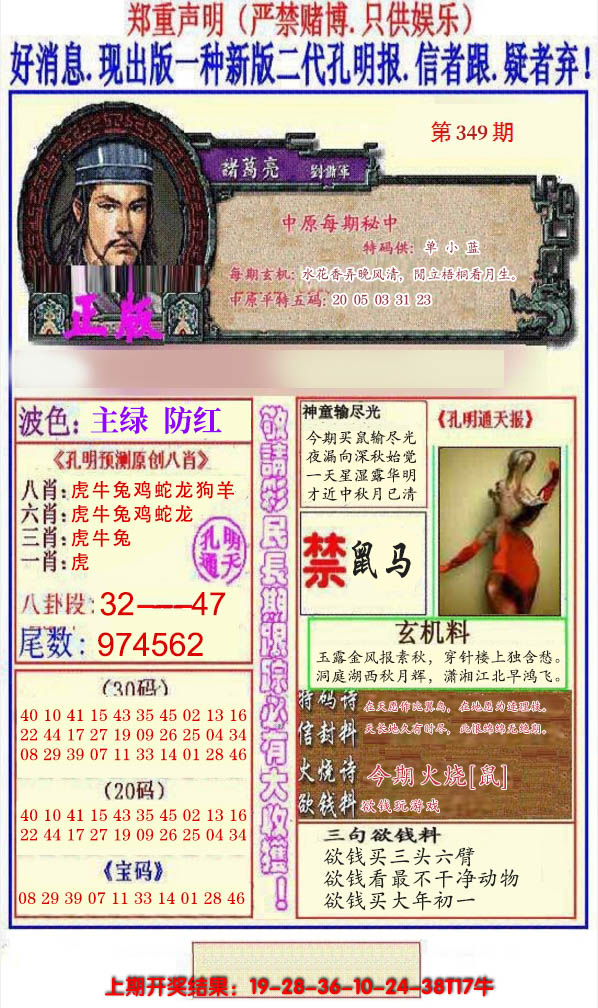 郑重声明（严禁赌博.只供娱乐）
好消息.现出版一种新版二代孔明报.信者跟.疑者弃!
第349期
諸葛亮
中原每期秘中
特码供：单小蓝
每期玄机：水花香弄晚风清，閒立梧桐看月生。
中原平特五码：20 05 03 31 23
正版
波色：主绿 防红
《孔明预测原创八肖》
八肖：虎牛兔鸡蛇龙狗羊
六肖：虎牛兔鸡蛇龙
三肖：虎牛兔
一肖：虎
孔明
通天
八卦段：32——47
尾数：974562
（30码）
40 10 41 15 43 35 45 02 13 16
22 44 17 27 19 09 26 25 04 34
08 29 39 07 11 33 14 01 28 46
（20码）
40 10 41 15 43 35 45 02 13 16
22 44 17 27 19 09 26 25 04 34
《宝码》
08 29 39 07 11 33 14 01 28 46
敬請彩民長期跟踪必有大收獲！
神童输尽光
今期买鼠输尽光
夜漏向深秋始觉
一天星湿露华明
才近中秋月已清
《孔明通天报》
禁鼠马
玄机料
玉露金风报素秋，穿针楼上独含愁。
洞庭湖西秋月辉，潇湘江北早鸿飞。
特码诗 在天愿作比翼鸟，在地愿为连理枝。
信封料 天长地久有时尽，此恨绵绵无绝期。
火烧诗 今期火烧[鼠]
欲钱料 欲钱玩游戏
三句欲钱料
欲钱买三头六臂
欲钱看最不干净动物
欲钱买大年初一
上期开奖结果：19-28-36-10-24-38T17牛